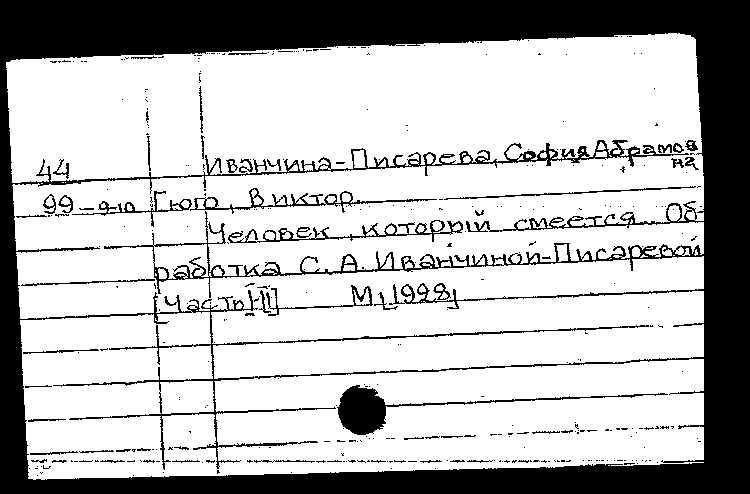 44 Иванчина-Писарева, София Абрамовна
99-9-10 Гюго, Виктор.
Человек, который смеется. Об-
работка С. А. Иванчиной-Писаревой
[Часть I-II] М., 1928,